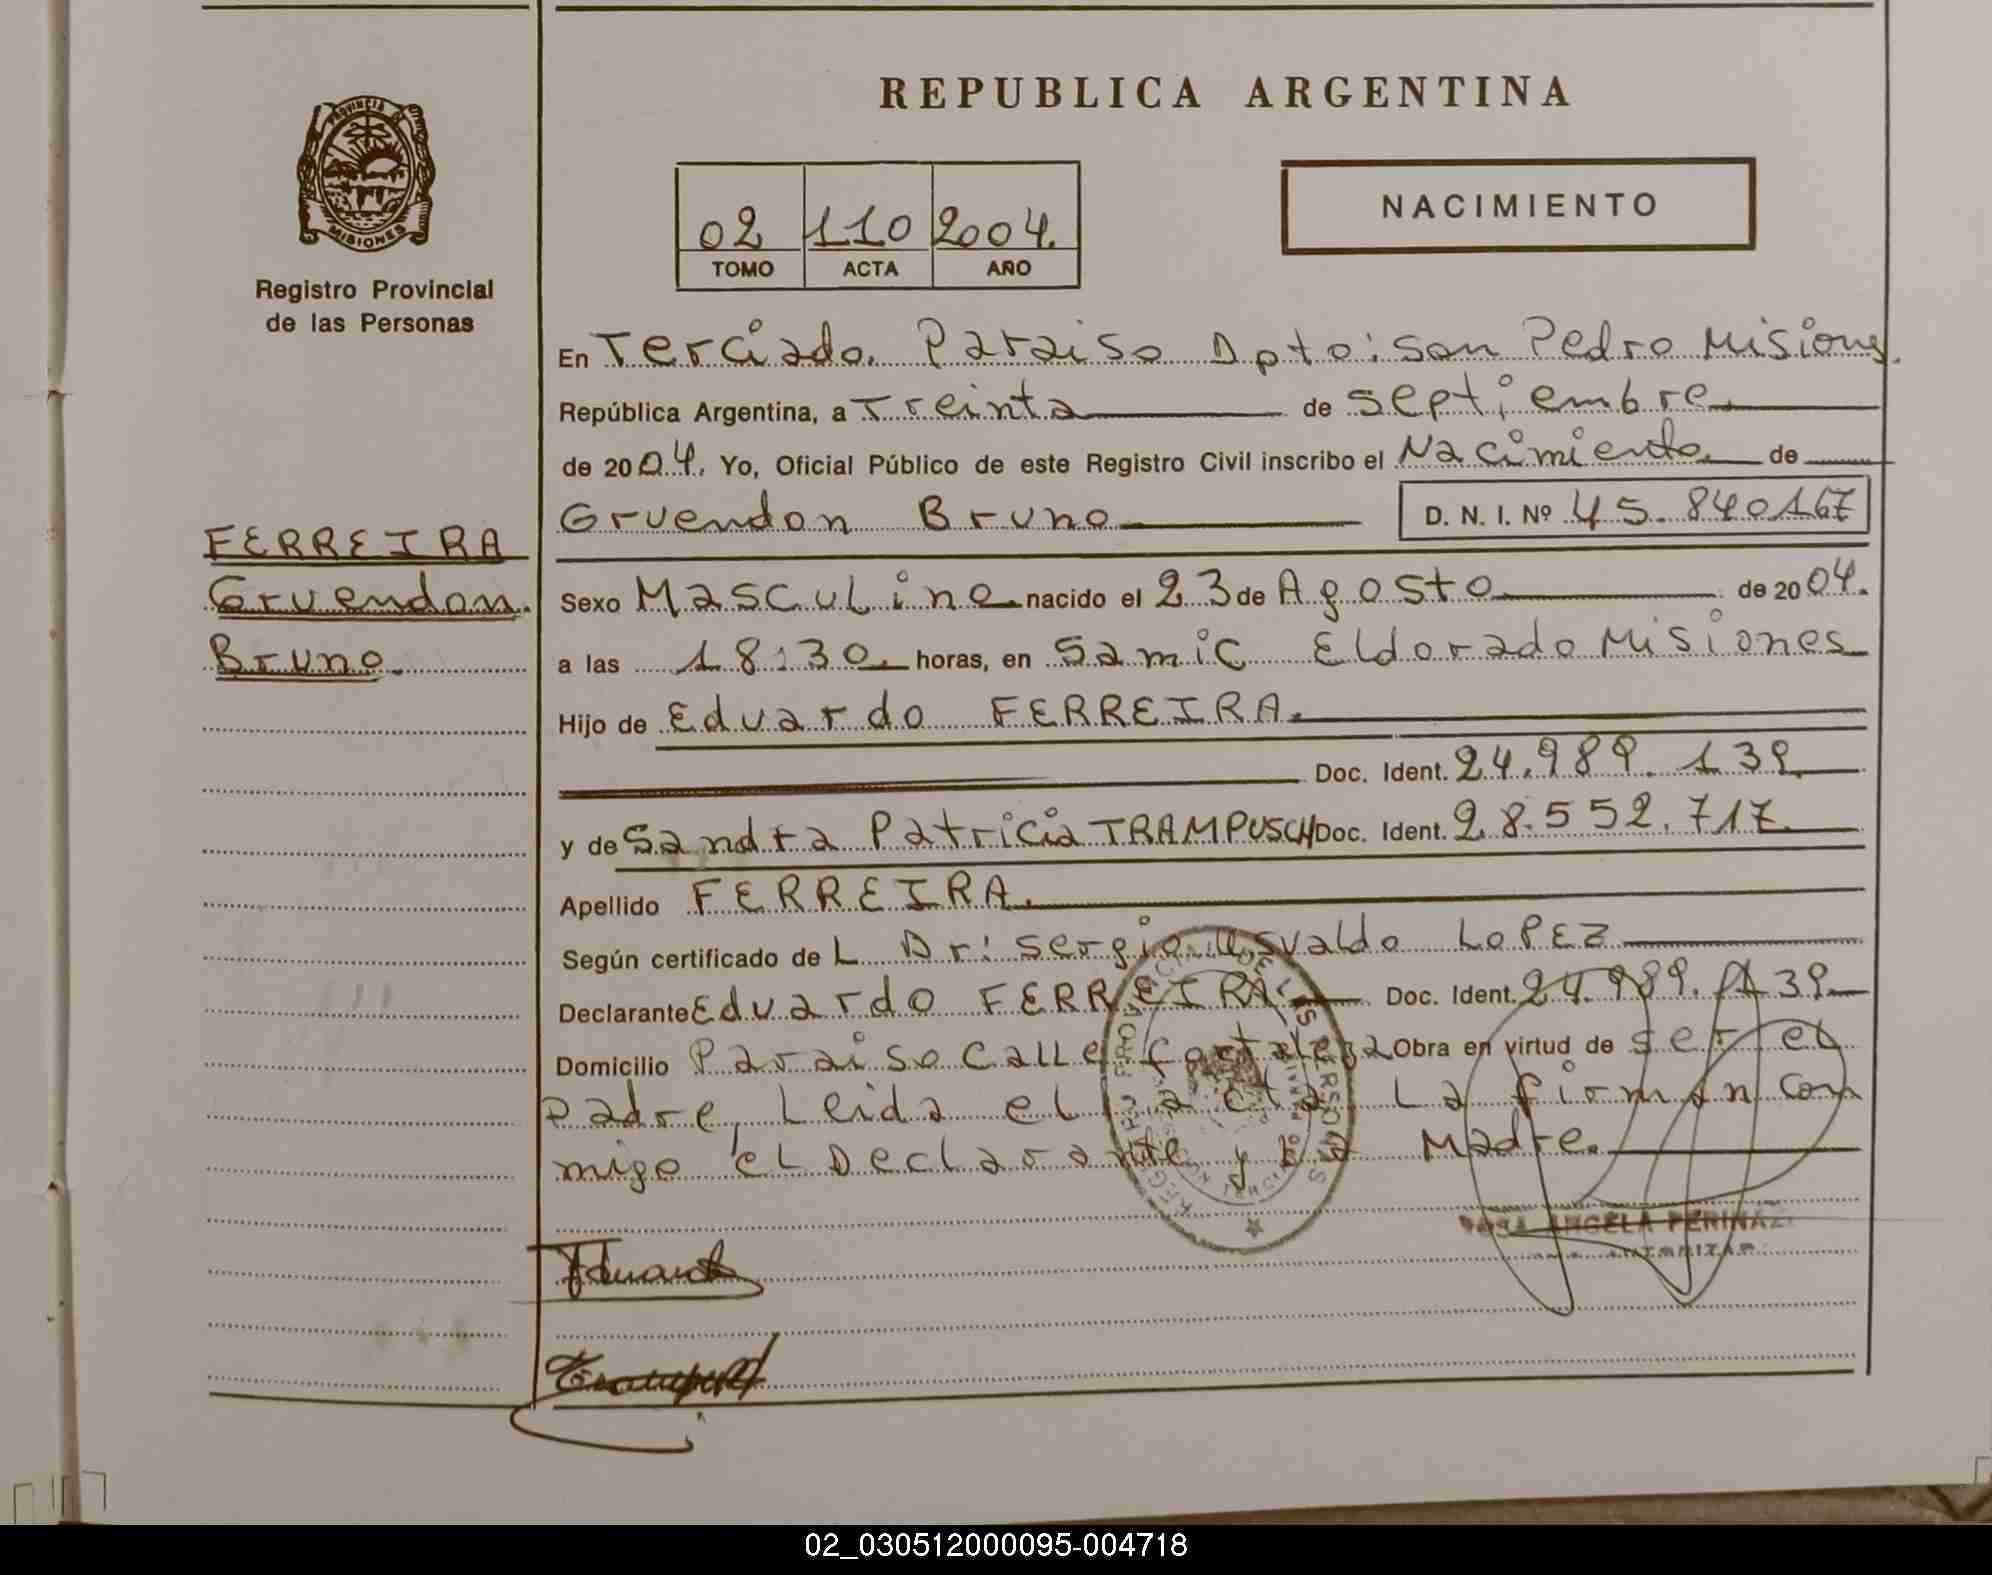 REPUBLICA ARGENTINA
PROVINCIA DE
MISIONES
Registro Provincial
de las Personas
02 110 2004.
TOMO ACTA AÑO
NACIMIENTO
En Terciado. Paraiso Dpto: San Pedro Misiones.
República Argentina, a Treinta de septiembre
de 2004. Yo, Oficial Público de este Registro Civil inscribo el Nacimiento de
Gruendon Bruno D. N. I. Nº 45.840167
FERREIRA
Gruendon.
Bruno.
Sexo Masculino nacido el 23 de Agosto de 2004.
a las 18:30. horas, en Samic Eldorado Misiones
Hijo de Eduardo FERREIRA.
Doc. Ident. 24.989.139
y de Sandra Patricia TRAMPUSCH Doc. Ident. 28.552.717
Apellido FERREIRA.
Según certificado de L Dr: Sergio Osvaldo LOPEZ
Declarante Eduardo FERREIRA Doc. Ident. 24.989.139
Domicilio Paraiso Calle Fortaleza Obra en virtud de ser el
Padre, Leida el acta La firman con
migo el Declarante y La Madre.
ROSA ANGELA
Eduardo
02_030512000095-004718